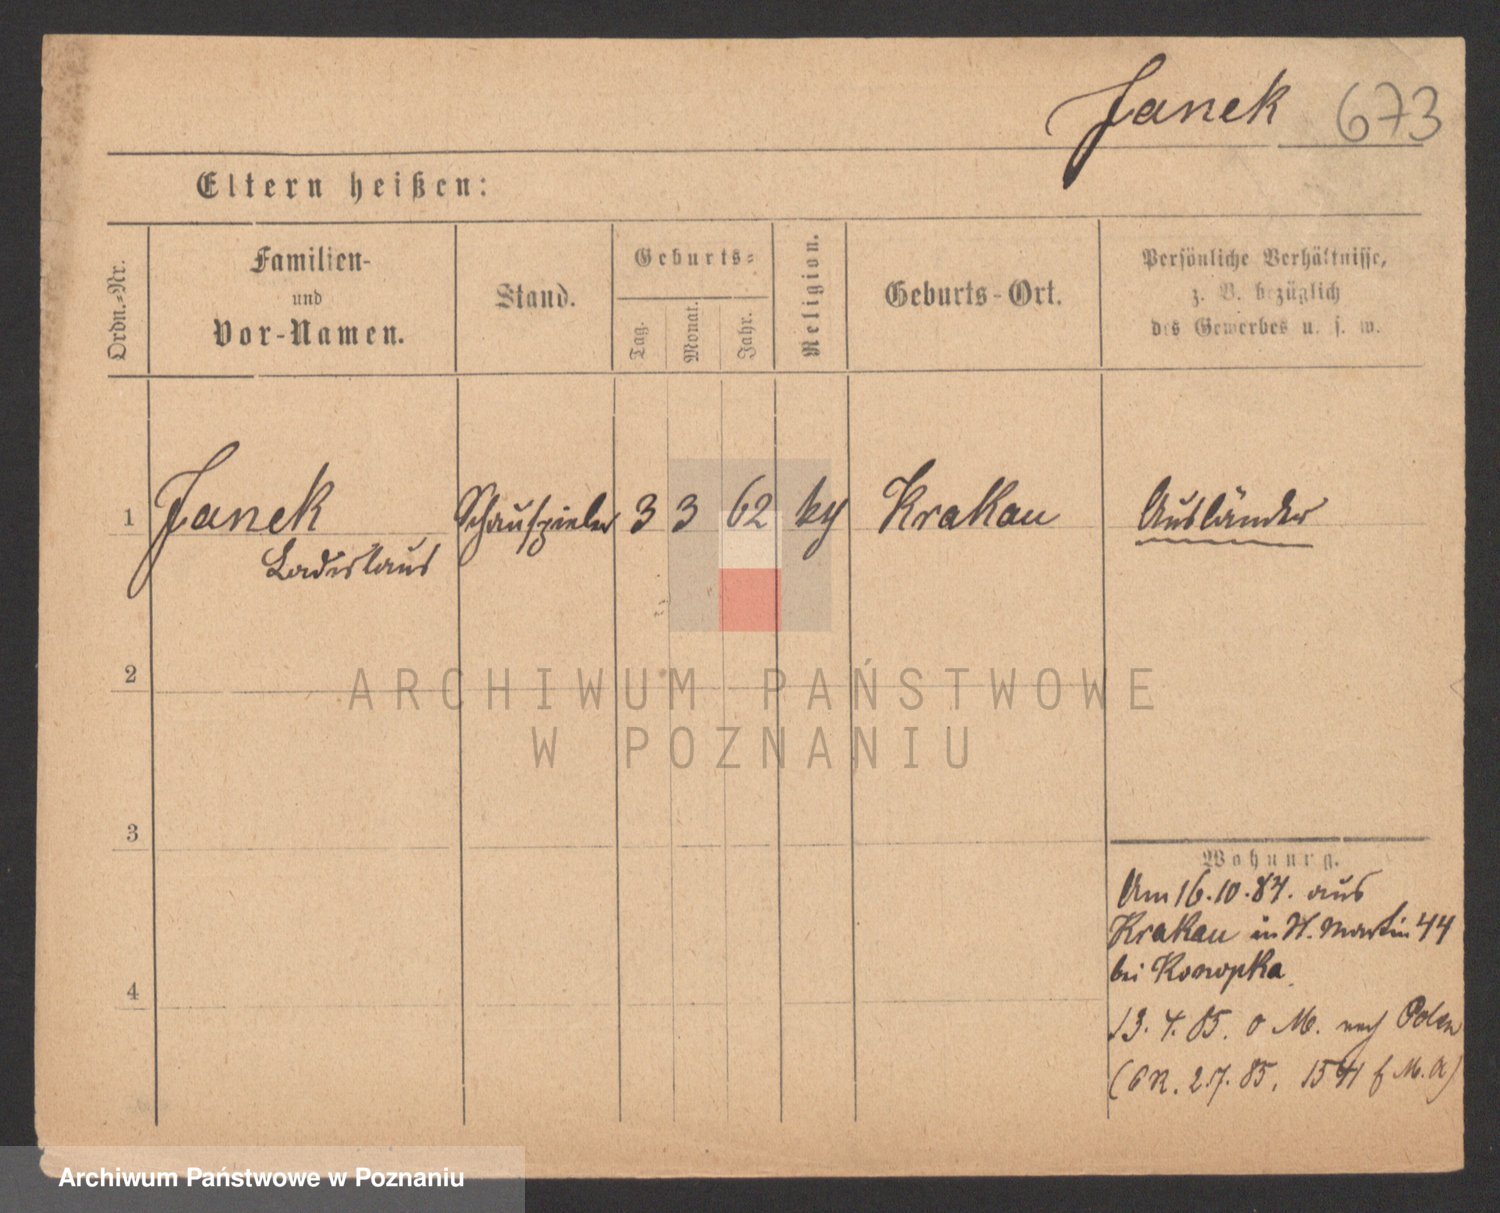 Janek 673
Eltern heißen:
Ordn.-Nr.
Familien-
und
Vor-Namen.
Stand.
Geburts-
Tag.
Monat.
Jahr.
Religion.
Geburts-Ort.
Persönliche Verhältnisse,
z. B. bezüglich
des Gewerbes u. s. w.
1 Janek Schauspieler 3 3 62 Krakau Ausländer
Ladislaus
2
ARCHIWUM PAŃSTWOWE
W POZNANIU
3
Wohnung.
Am 16.10.84. aus
Krakau in St. Martin 44
bei Konopka
4
13. 4. 85. o M. nach Polen
85.
Archiwum Państwowe w Poznaniu